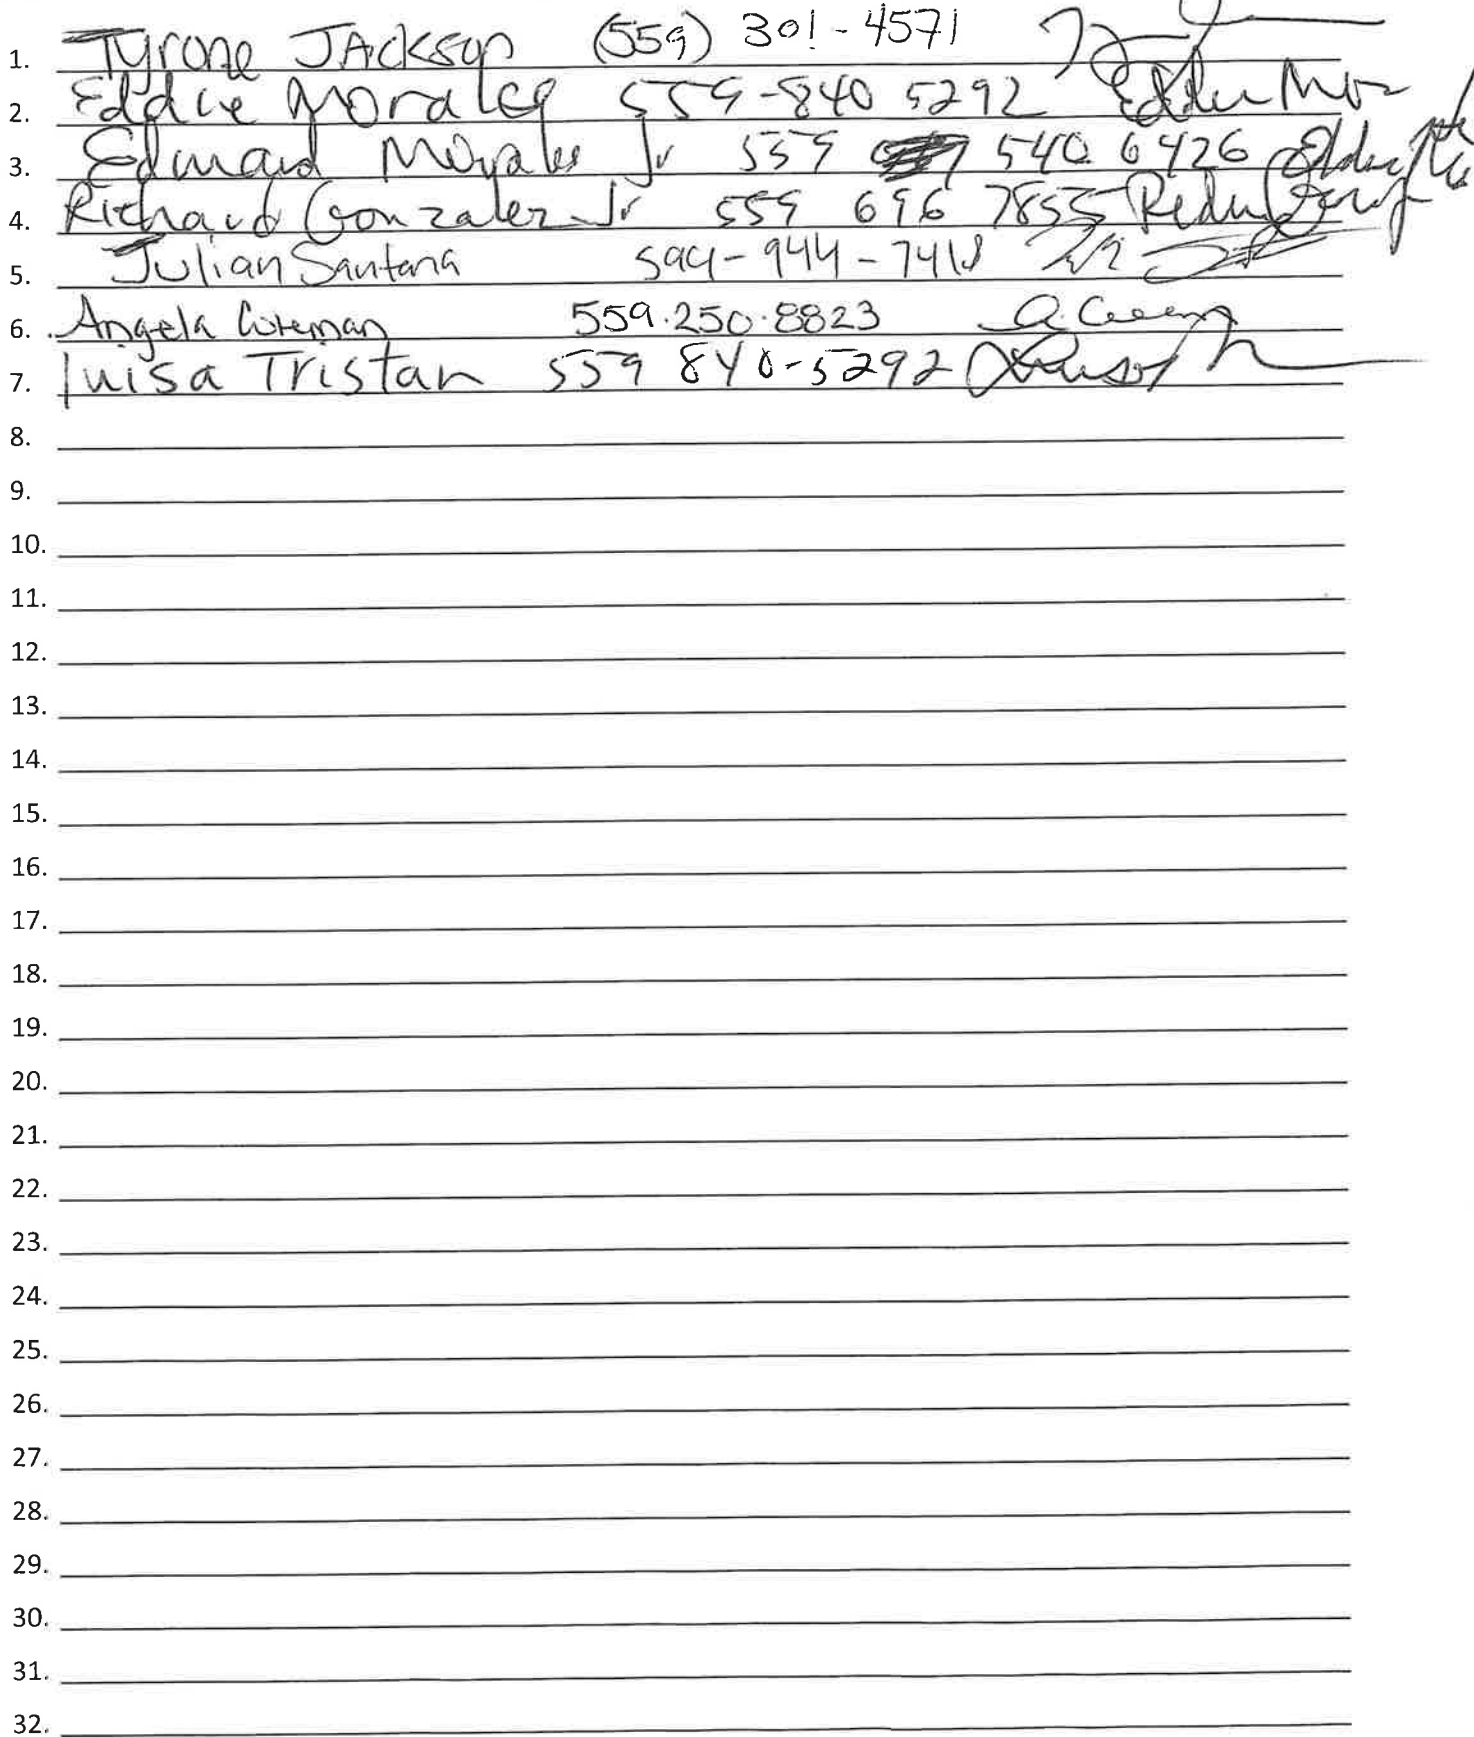 1. Tyrone JAckson (559) 301-4571
2. Eddie Morales 559-840 5292
3. Edward Morales Jr 559 540 6426
4. Richard Gonzalez Jr 559 696 7855
5. Julian Santana 944-
6. Angela 559.250.8823
7. luisa Tristan 559 840-5292
8.
9.
10.
11.
12.
13.
14.
15.
16.
17.
18.
19.
20.
21.
22.
23.
24.
25.
26.
27.
28.
29.
30.
31.
32.